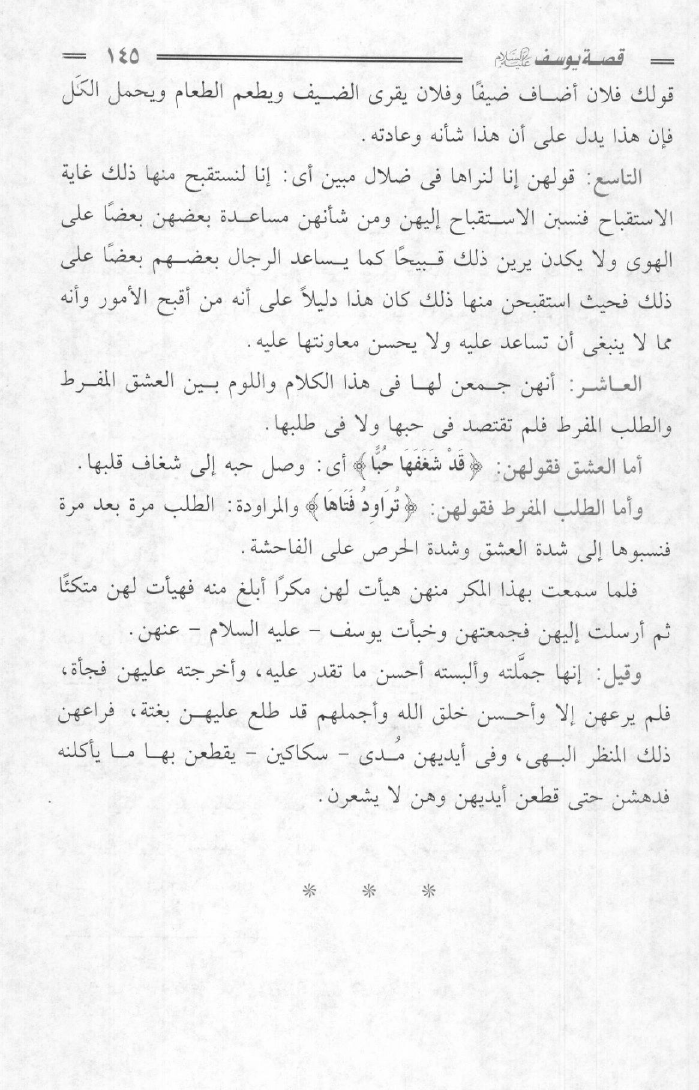 قصة يوسف عليه السلام ١٤٥
قولك فلان أضاف ضيفًا وفلان يقرى الضيف ويطعم الطعام ويحمل الكَل
فإن هذا يدل على أن هذا شأنه وعادته.
التاسع: قولهن إنا لنراها فى ضلال مبين أى: إنا لنستقبح منها ذلك غاية
الاستقباح فنسبن الاستقباح إليهن ومن شأنهن مساعدة بعضهن بعضًا على
الهوى ولا يكدن يرين ذلك قبيحًا كما يساعد الرجال بعضهم بعضًا على
ذلك فحيث استقبحن منها ذلك كان هذا دليلاً على أنه من أقبح الأمور وأنه
مما لا ينبغى أن تساعد عليه ولا يحسن معاونتها عليه.
العاشر: أنهن جمعن لها فى هذا الكلام واللوم بين العشق المفرط
والطلب المفرط فلم تقتصد فى حبها ولا فى طلبها.
أما العشق فقولهن: ﴿قَدْ شَغَفَهَا حُبًّا﴾ أى: وصل حبه إلى شغاف قلبها.
وأما الطلب المفرط فقولهن: ﴿تُرَاوِدُ فَتَاهَا﴾ والمراودة: الطلب مرة بعد مرة
فنسبوها إلى شدة العشق وشدة الحرص على الفاحشة.
فلما سمعت بهذا المكر منهن هيأت لهن مكرًا أبلغ منه فهيأت لهن متكئًا
ثم أرسلت إليهن فجمعتهن وخبأت يوسف - عليه السلام - عنهن.
وقيل: إنها جمَّلته وألبسته أحسن ما تقدر عليه، وأخرجته عليهن فجأة،
فلم يرعهن إلا وأحسن خلق الله وأجملهم قد طلع عليهن بغتة، فراعهن
ذلك المنظر البهى، وفى أيديهن مُدى - سكاكين - يقطعن بها ما يأكلنه
فدهشن حتى قطعن أيديهن وهن لا يشعرن.
* * *